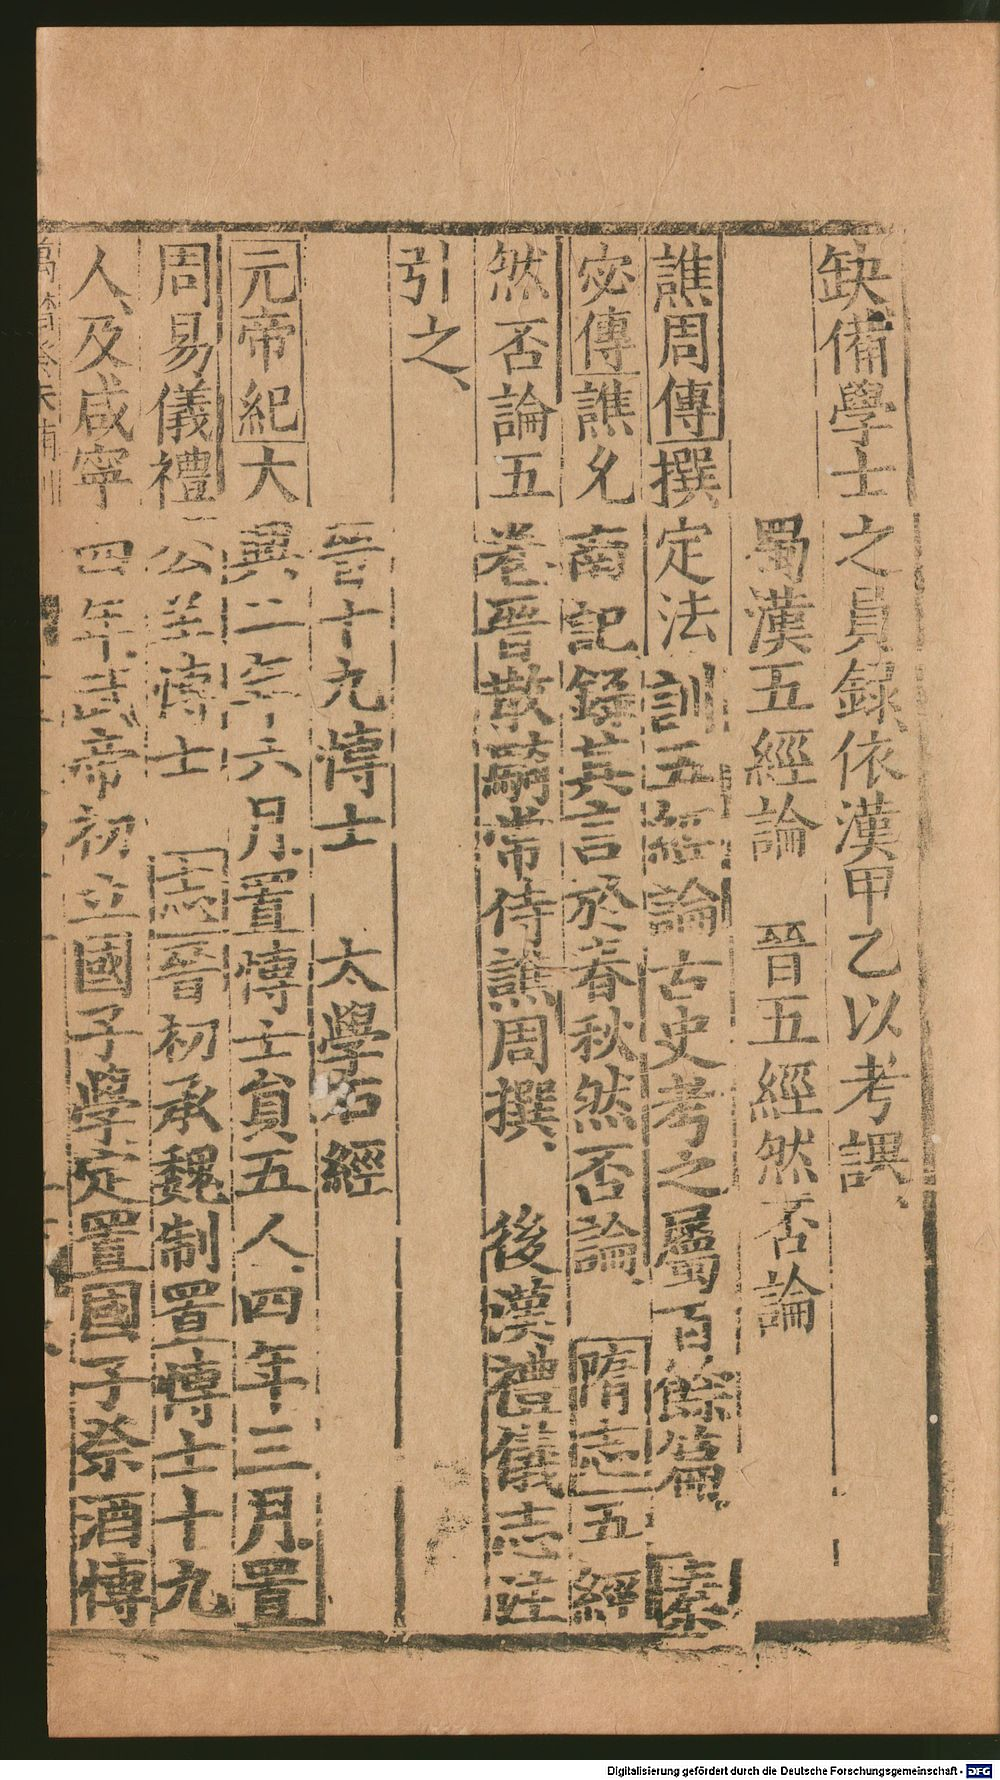 缺備學士之員録依漢甲乙以考課、
蜀漢五經論 晉五經然否論
譙周傳撰定法訓五經論古史考之屬百餘篇、秦
宓傳譙允南記録其言於春秋然否論、隋志五經
然否論五卷晉散騎常侍譙周撰、後漢禮儀志註
引之、
晉十九博士 太學石經
元帝紀大興二年六月置博士員五人、四年三月置
周易儀禮公羊博士 志晉初承魏制置博士十九
人、及咸寧四年武帝初立國子學定置國子祭酒博
Digitalisierung gefördert durch die Deutsche Forschungsgemeinschaft - DFG